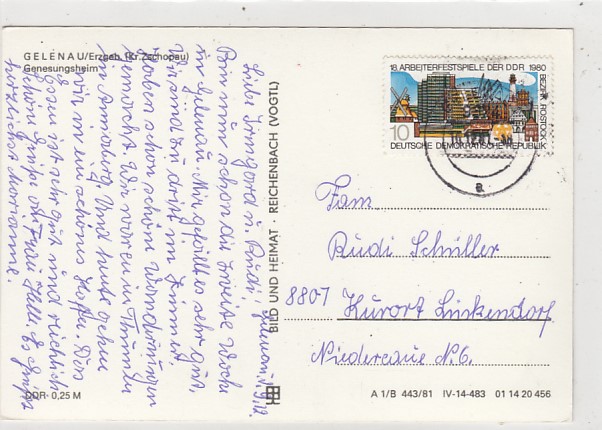 GELENAU/Erzgeb. (Kr. Zschopau)
Genesungsheim
18. ARBEITERFESTSPIELE DER DDR 1980
BEZIRK ROSTOCK
10
DEUTSCHE DEMOKRATISCHE REPUBLIK
a
Fam
Rudi Schüller
8807 Kurort Lückendorf
Niederaue N. 6.
Liebe Irmgard u. Rudi!
Bin nun schon die zweite Woche
in Gelenau. Mir gefällt es sehr gut,
Wir sind zu dritt im Zimmer.
Haben schon schöne Wanderungen
gemacht. Wir waren in Thum,
in Annaberg Und heute gehen
wir in ein schönes Kaffee. Das
Essen ist sehr gut und reichlich
schöne Grüße
herzlichst Marianne.
BILD UND HEIMAT · REICHENBACH (VOGTL)
DDR · 0,25 M
A 1/B 443/81 IV-14-483 01 14 20 456